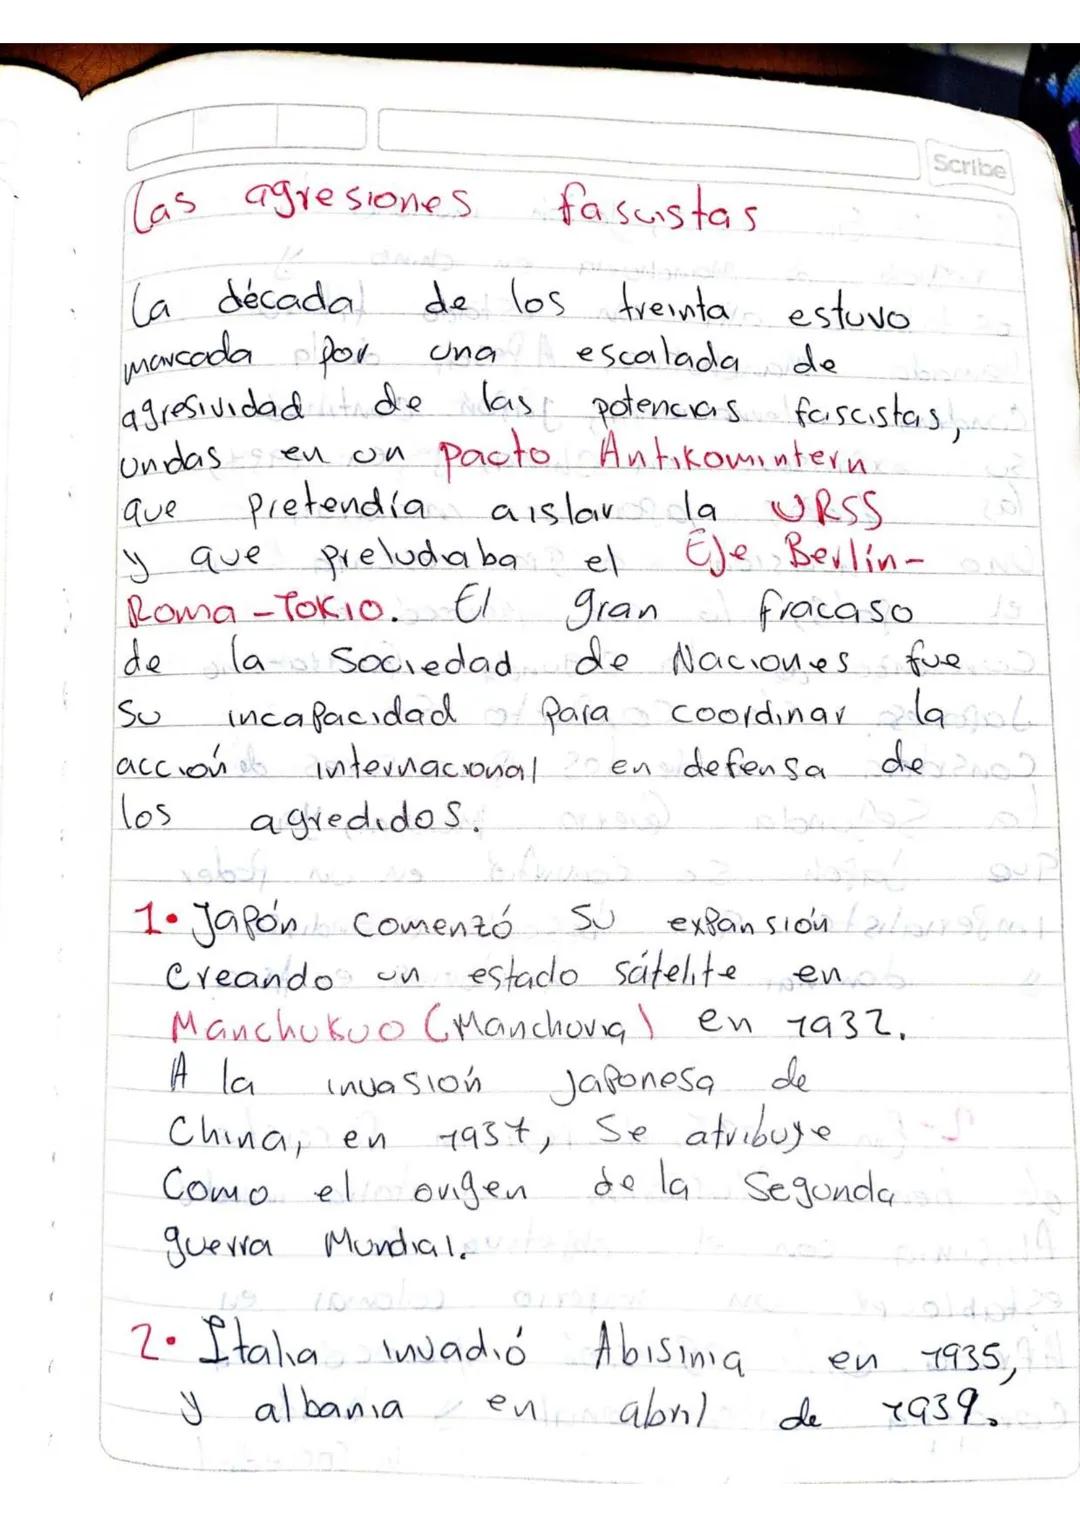 Scribe
Las agresiones fascistas
La década de los treinta estuvo
marcada por una escalada de
agresividad de las potencias fascistas,
undas en un pacto Antikomintern
que pretendía aislar la URSS
y que preludiaba el Eje Berlín-
Roma-Tokio. El gran fracaso
de la Sociedad de Naciones fue
su incapacidad para coordinar la
acción internacional en defensa de
los agredidos.
1. Japón comenzó su expansión
Creando un estado sátelite en
Manchukuo (Manchuria) en 1932.
A la invasión Japonesa de
China, en 1937, Se atribuye
Como el origen de la Segunda
guerra Mundial.
2. Italia invadió Abisinia en 1935,
y albania en abril de 1939.